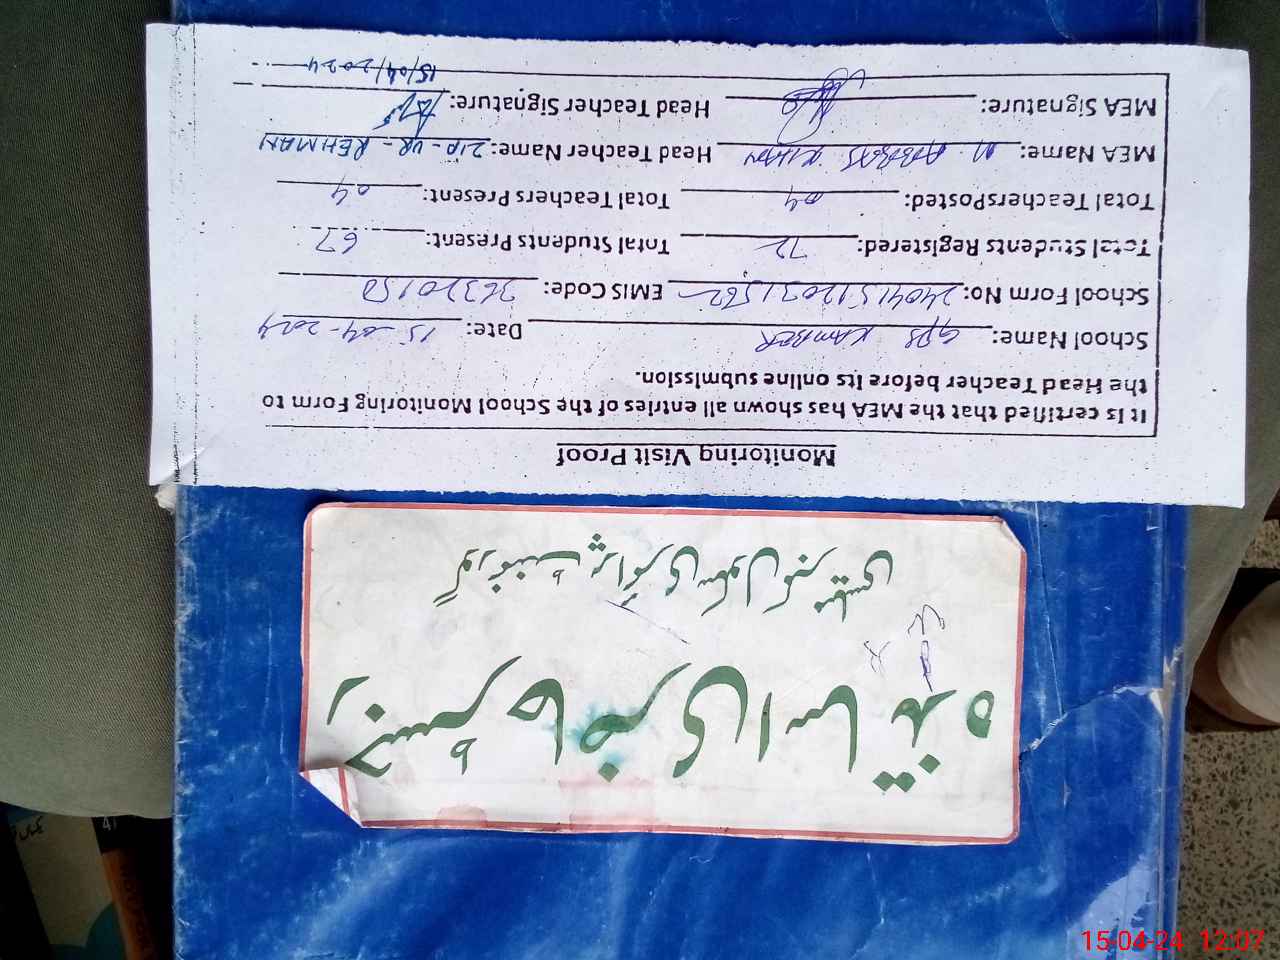 Monitoring Visit Proof
It is certified that the MEA has shown all entries of the School Monitoring Form to
the Head Teacher before its online submission.
School Name: GPS KAMBER Date: 15-04-2024
School Form No: EMIS Code:
Total Students Registered: 72 Total Students Present: 67
Total TeachersPosted: 04 Total Teachers Present: 04
MEA Name: M KHAN Head Teacher Name: ZIA-UR-REHMAN
MEA Signature: Head Teacher Signature:
15/04/2024
گورنمنٹ پرائمری سکول
رجسٹر حاضری اساتذہ
15-04-24 12:07